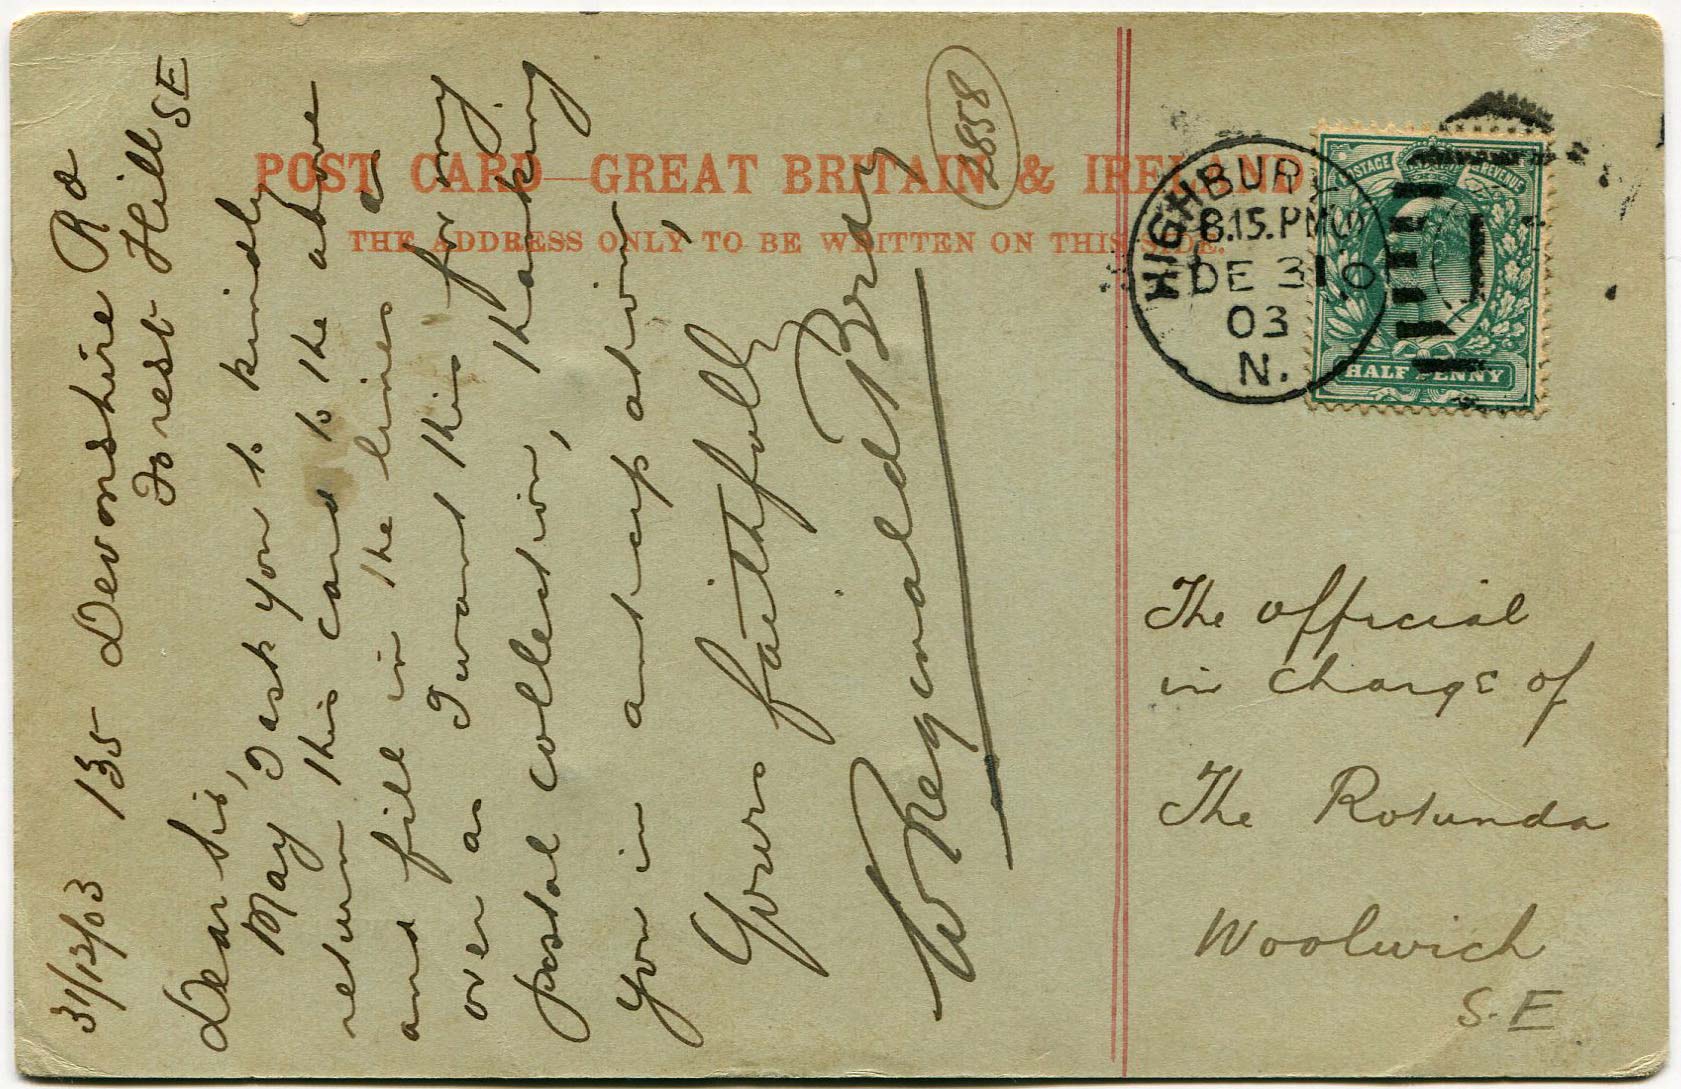 POST CARD—GREAT BRITAIN & IRELAND
THE ADDRESS ONLY TO BE WRITTEN ON THIS SIDE.
2858
31/12/03 135 Devonshire Rd
Forest Hill SE
Dear Sir,
May I ask you to kindly
return this card to the above
and fill in the lines a
over as I want this for my
postal collection, thanking
you in anticipation,
Yours faithfully
W Reginald Bray
HIGHBURY
8.15.PM
DE 31
03
N.
POSTAGE REVENUE
HALF PENNY
The official
in charge of
The Rotunda
Woolwich
S.E